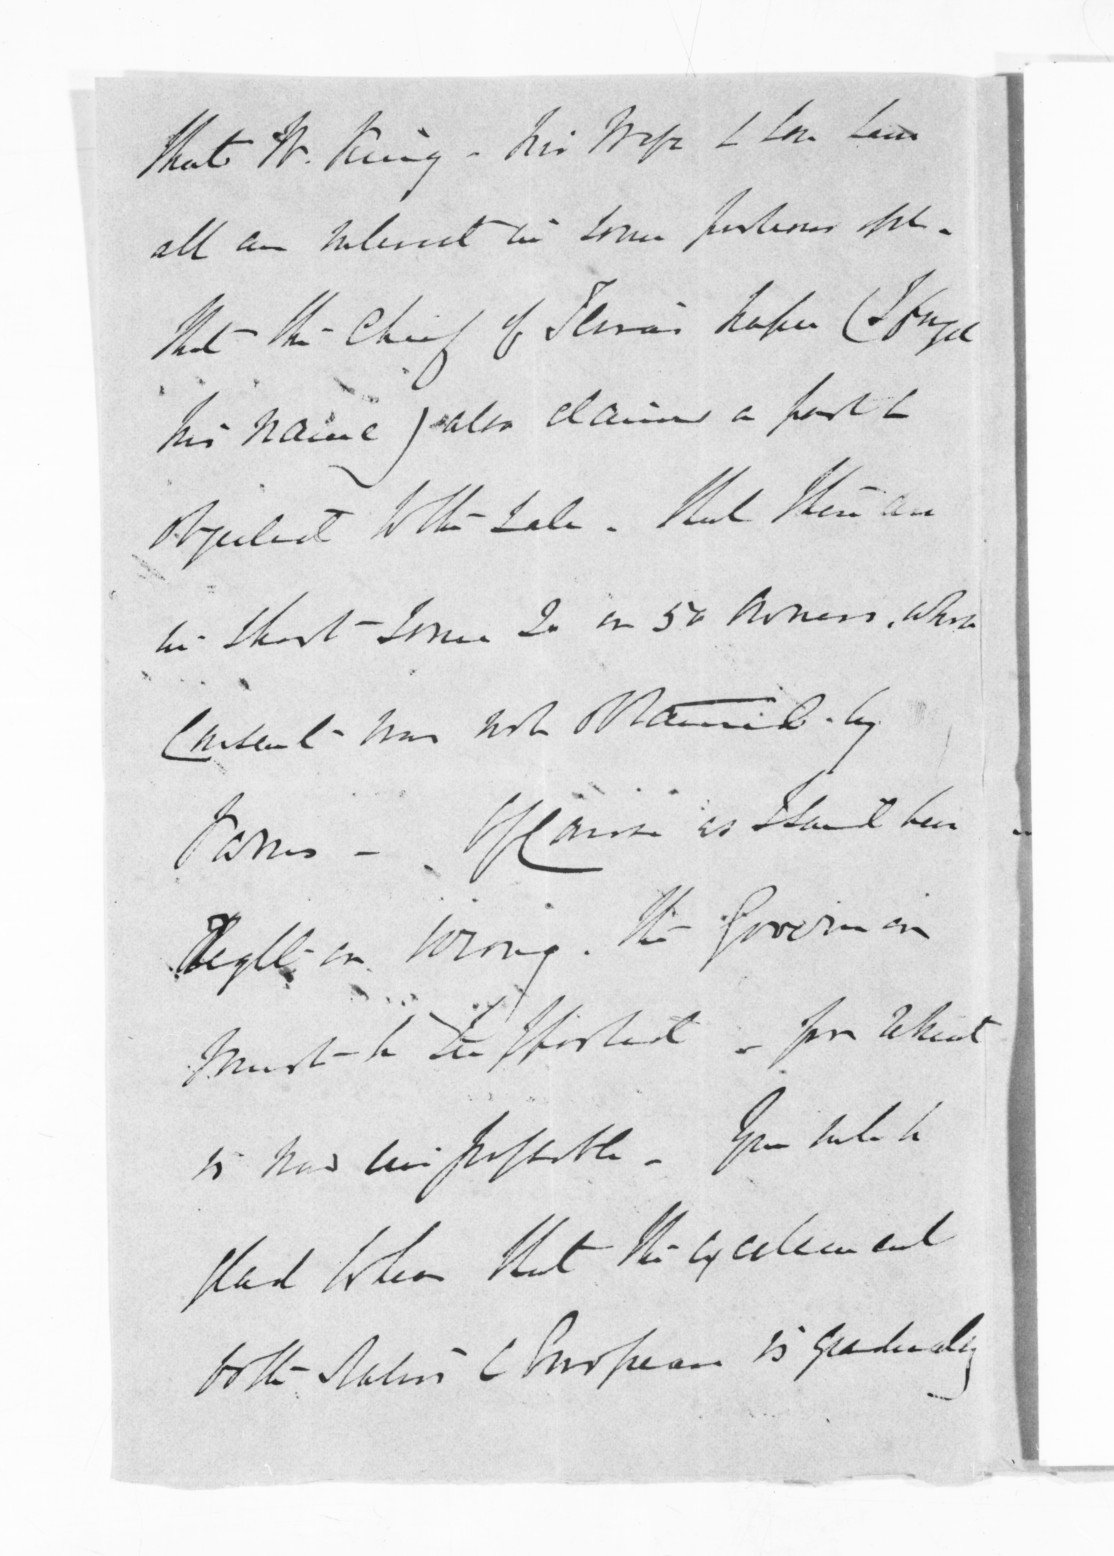 that W. King - his Wife & Son have
all an interest in some portions of it -
that the Chief of (I forget
his name) also claims a part &
objected to the sale - that there are
in short some or 50 owners, whose
consent was not obtained by
Of Course as I said
Right or Wrong. the Governor
must be supported - for
is now impossible - You will be
glad to hear that the excitement
both Native & European is gradually